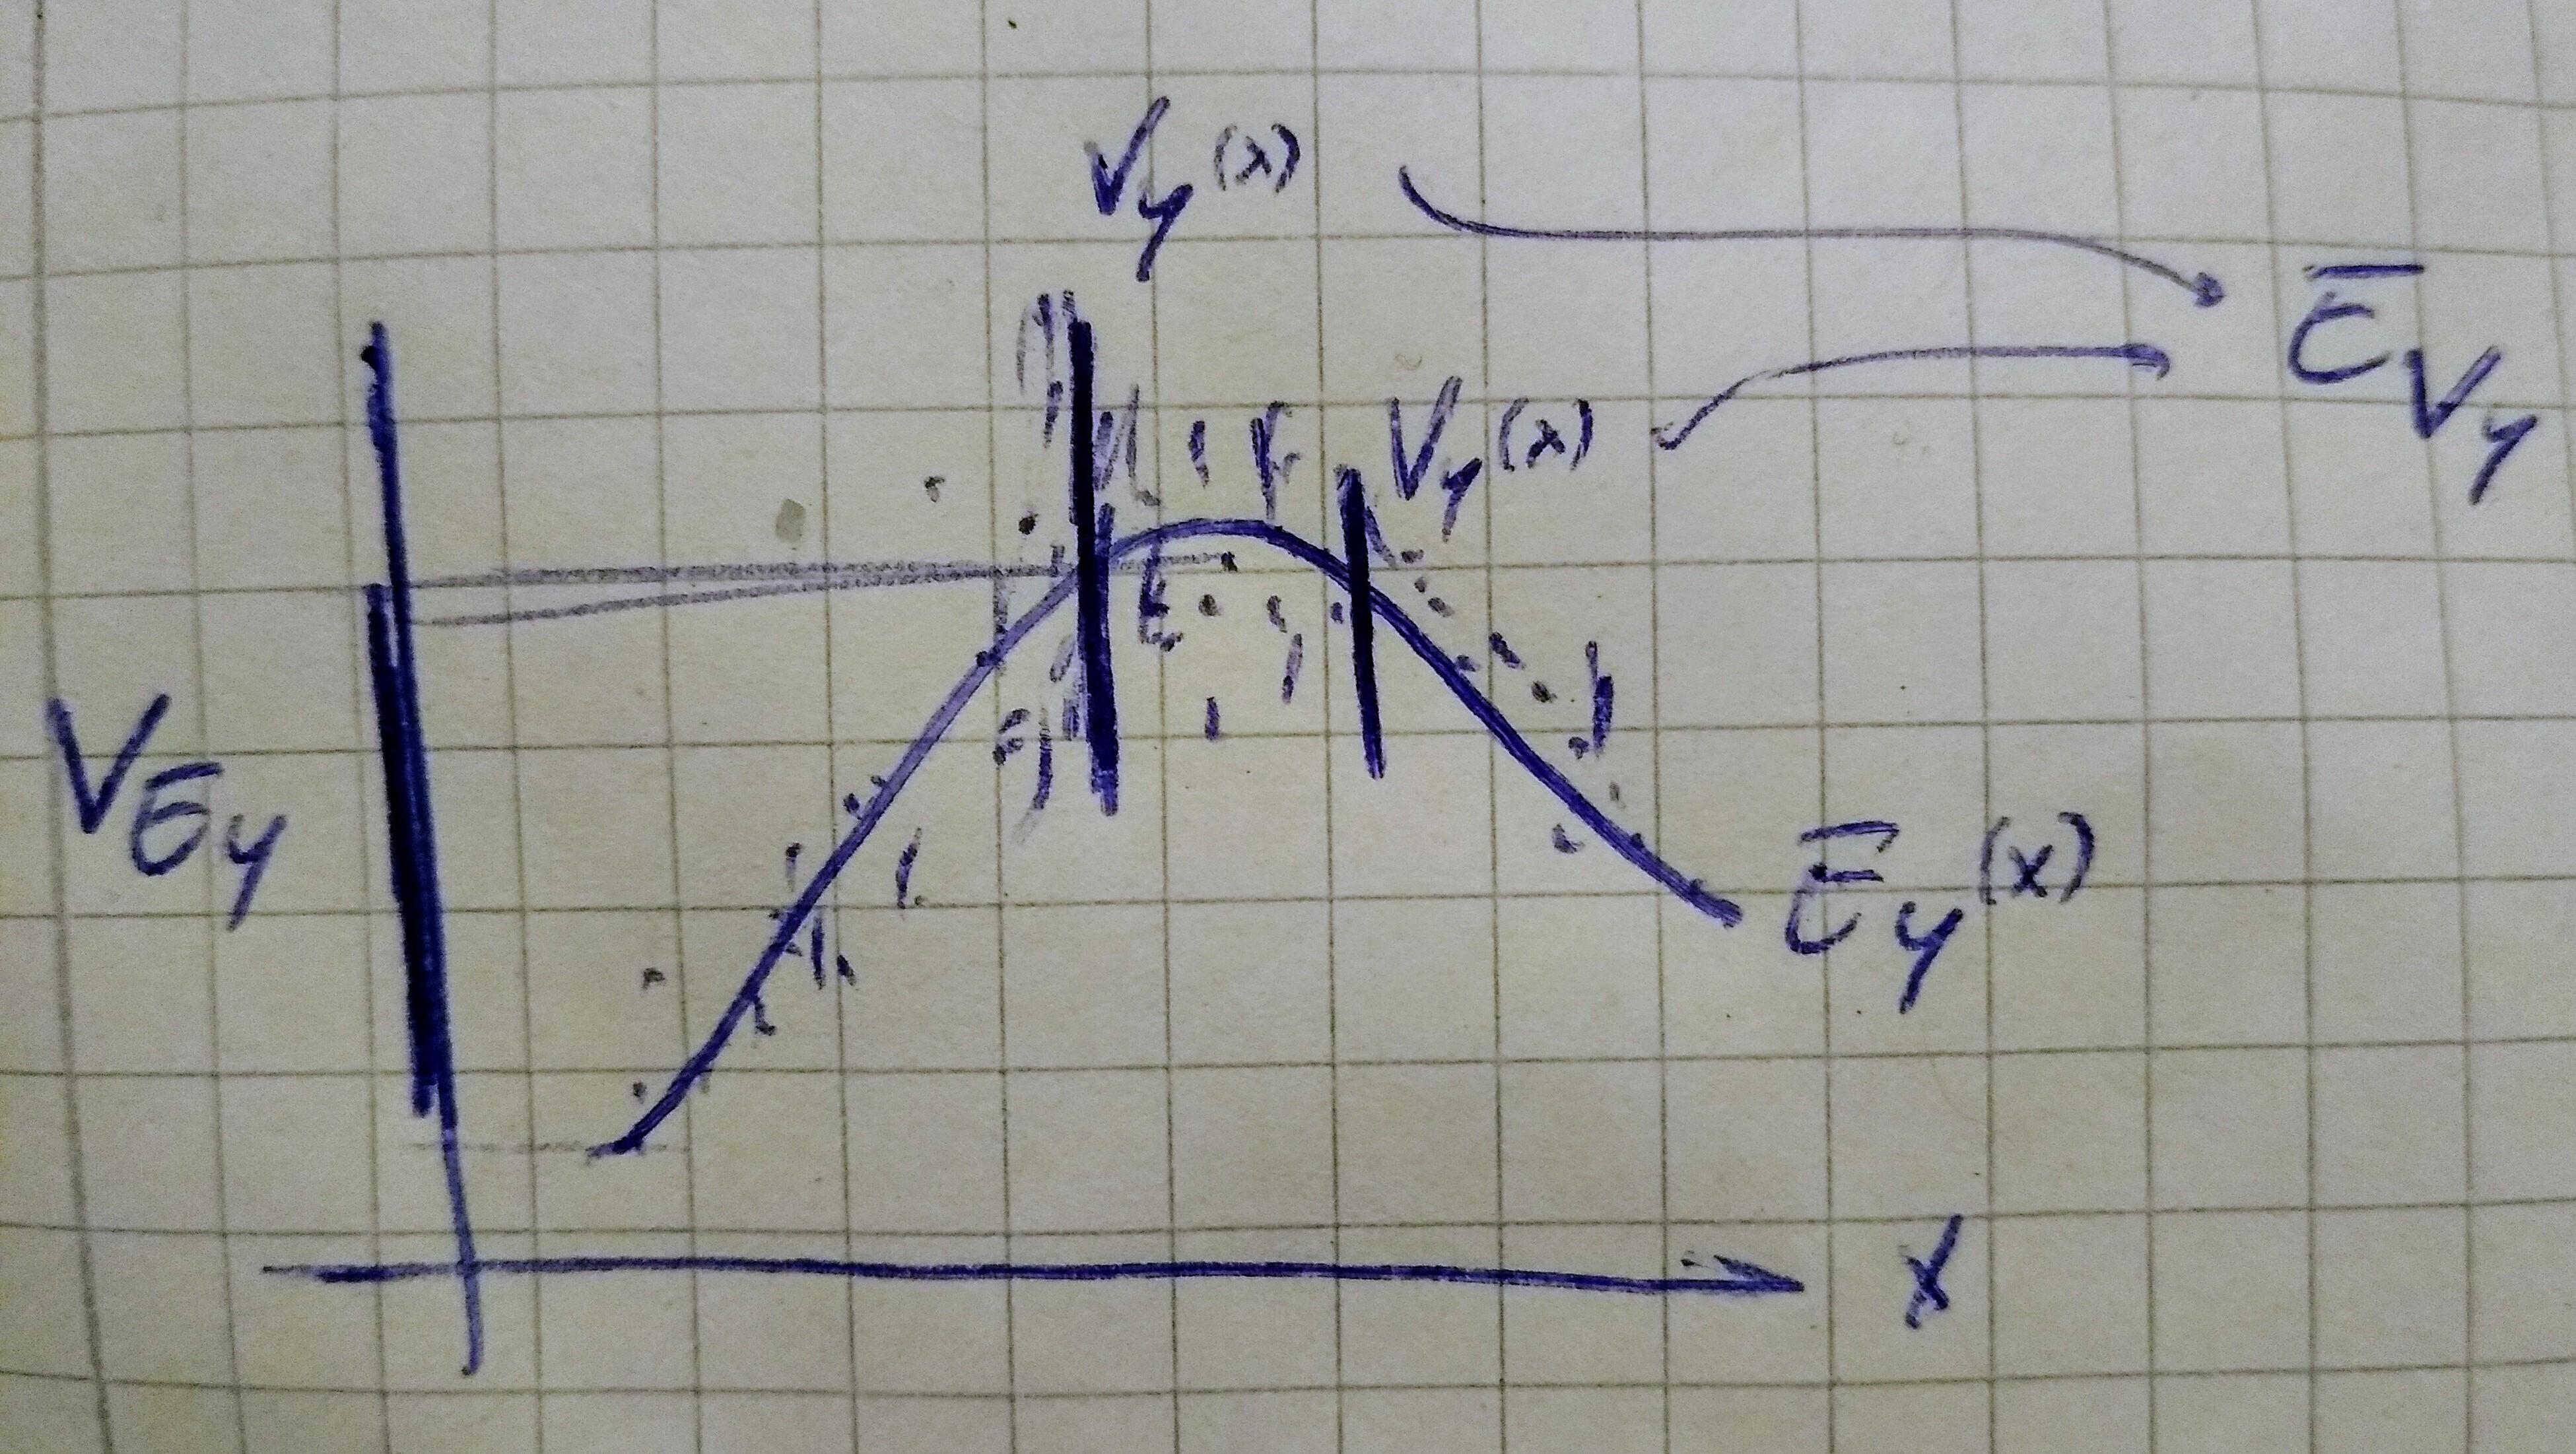 Vy(x)
EVy
Vy(x)
VEy
Ey(x)
x